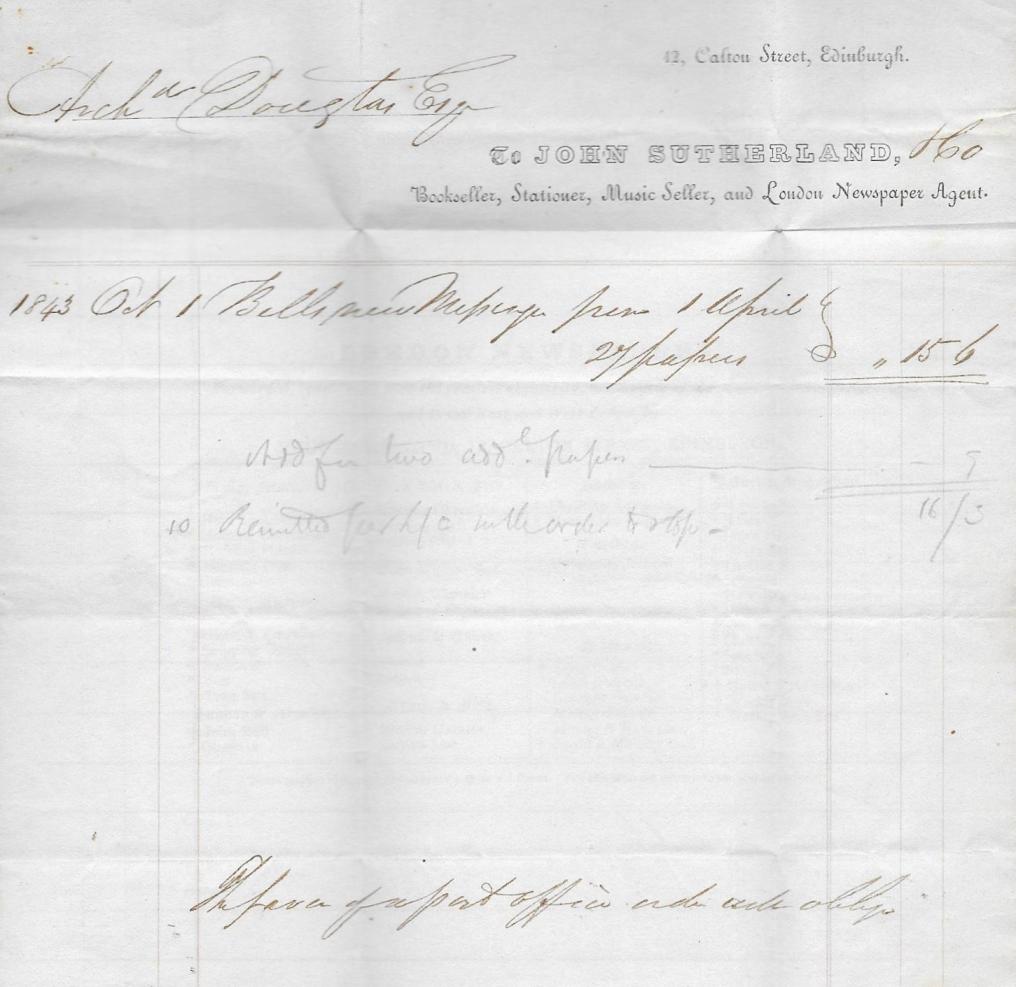 12, Calton Street, Edinburgh.
Archd Douglas Esqr
To JOHN SUTHERLAND, & Co
Bookseller, Stationer, Music Seller, and London Newspaper Agent.
1843 Oct 1 Bells new Messenger from 1 April
27 papers „ 15 6
Add for two addl. papers — - 9
16/3
10 Remitted with order to stop -
The favor of a post office order will oblige